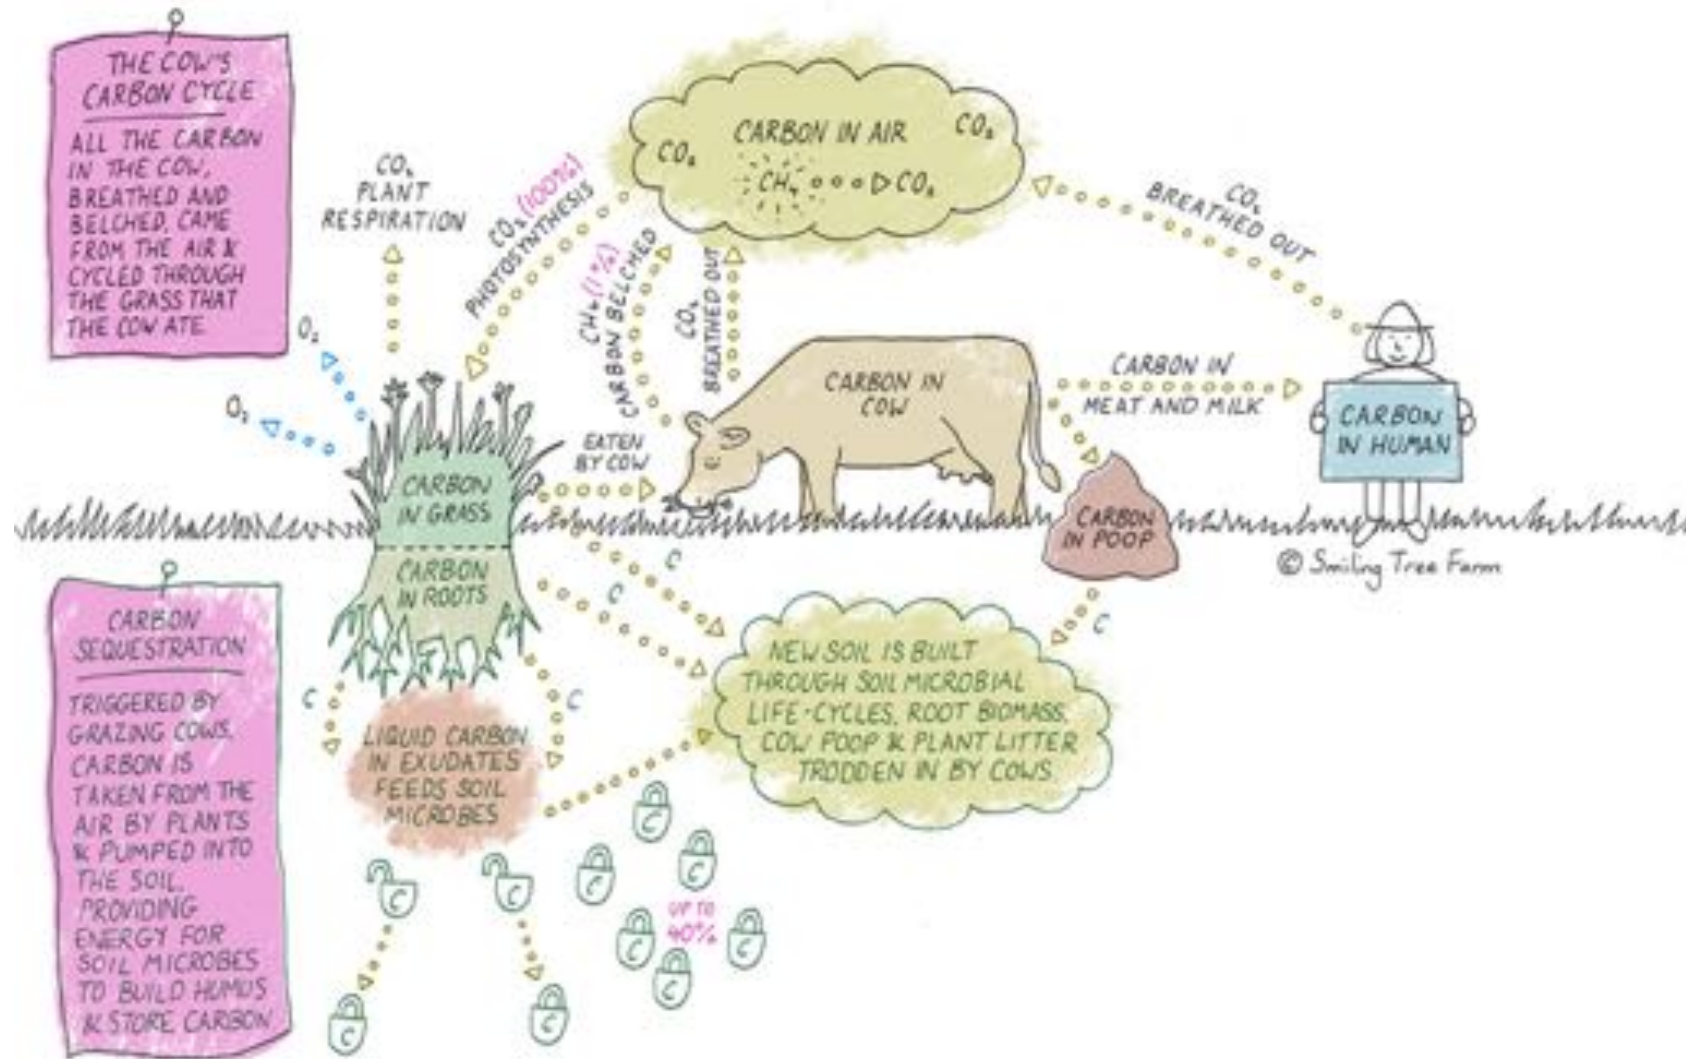 THE COW'S
CARBON CYCLE
ALL THE CARBON
IN THE COW,
BREATHED AND
BELCHED, CAME
FROM THE AIR &
CYCLED THROUGH
THE GRASS THAT
THE COW ATE
CO₂
PLANT
RESPIRATION
CO₂ (100%)
PHOTOSYNTHESIS
CARBON IN AIR
CO₂
CO₂
CH₄
CO₂
CH₄ (1%)
CARBON BELCHED
CO₂
BREATHED OUT
CO₂
BREATHED OUT
O₂
O₂
EATEN
BY COW
CARBON IN
COW
CARBON IN
MEAT AND MILK
CARBON
IN HUMAN
CARBON
IN GRASS
CARBON
IN POOP
© Smiling Tree Farm
CARBON
IN ROOTS
C
C
C
C
C
CARBON
SEQUESTRATION
TRIGGERED BY
GRAZING COWS,
CARBON IS
TAKEN FROM THE
AIR BY PLANTS
& PUMPED INTO
THE SOIL,
PROVIDING
ENERGY FOR
SOIL MICROBES
TO BUILD HUMUS
& STORE CARBON
LIQUID CARBON
IN EXUDATES
FEEDS SOIL
MICROBES
NEW SOIL IS BUILT
THROUGH SOIL MICROBIAL
LIFE-CYCLES, ROOT BIOMASS,
COW POOP & PLANT LITTER
TRODDEN IN BY COWS.
C
C
C
C
C
UP TO
40%
C
C
C
C
C